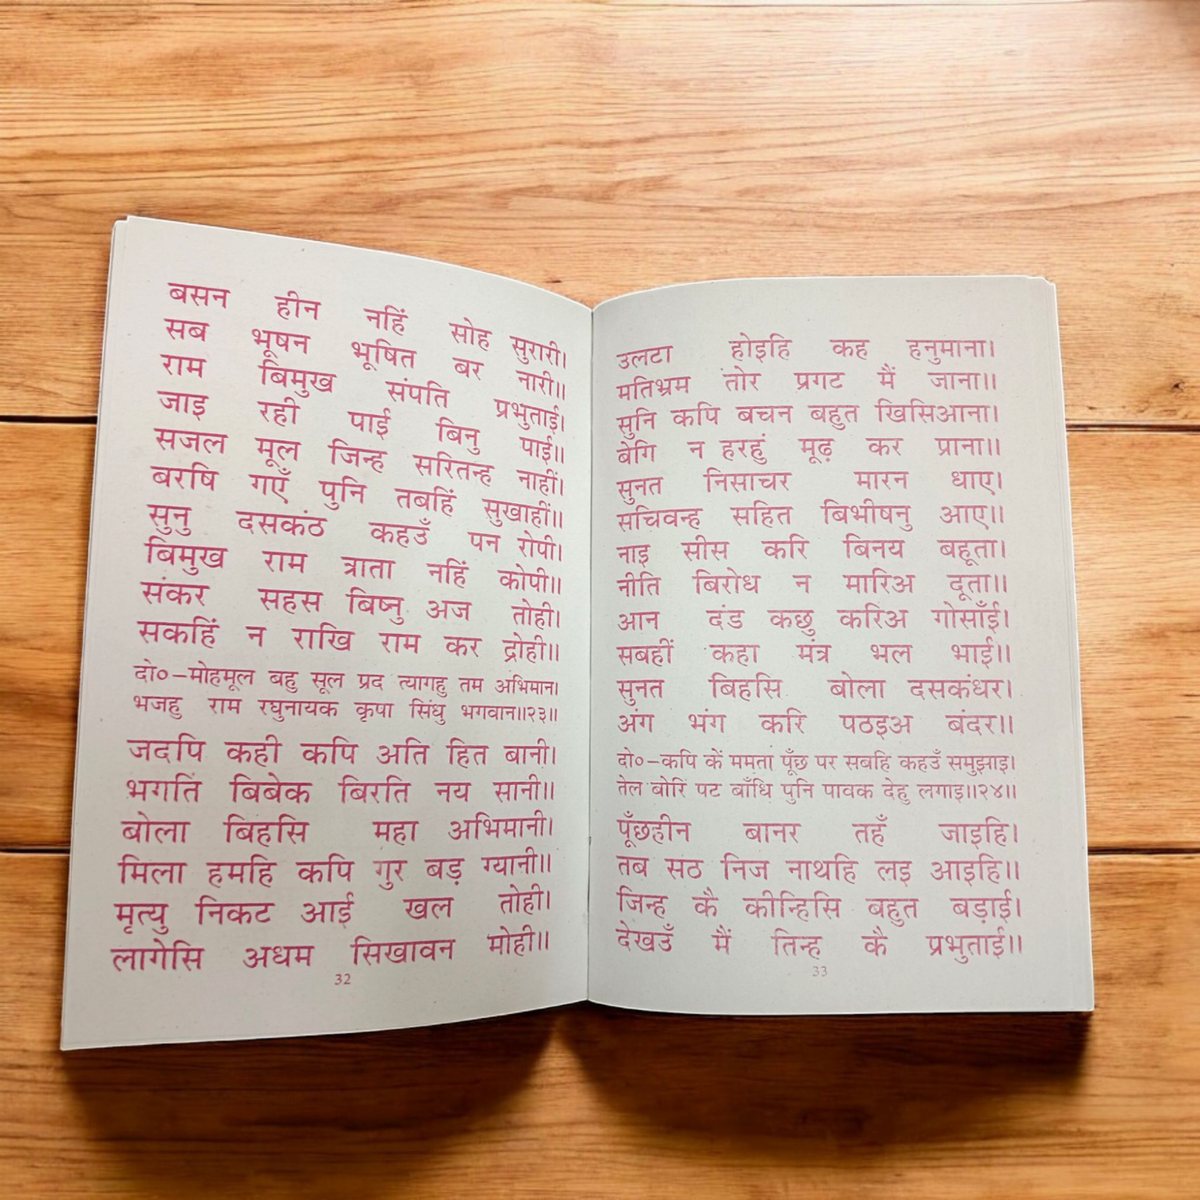 बसन हीन नहिं सोह सुरारी।
सब भूषन भूषित बर नारी॥
राम बिमुख संपति प्रभुताई।
जाइ रही पाई बिनु पाई॥
सजल मूल जिन्ह सरितन्ह नाहीं।
बरषि गएँ पुनि तबहिं सुखाहीं॥
सुनु दसकंठ कहउँ पन रोपी।
बिमुख राम त्राता नहिं कोपी॥
संकर सहस बिष्नु अज तोही।
सकहिं न राखि राम कर द्रोही॥
दो०–मोहमूल बहु सूल प्रद त्यागहु तम अभिमान।
भजहु राम रघुनायक कृपा सिंधु भगवान॥२३॥
जदपि कही कपि अति हित बानी।
भगति बिबेक बिरति नय सानी॥
बोला बिहसि महा अभिमानी।
मिला हमहि कपि गुर बड़ ग्यानी॥
मृत्यु निकट आई खल तोही।
लागेसि अधम सिखावन मोही॥
32
उलटा होइहि कह हनुमाना।
मतिभ्रम तोर प्रगट मैं जाना॥
सुनि कपि बचन बहुत खिसिआना।
बेगि न हरहुं मूढ़ कर प्राना॥
सुनत निसाचर मारन धाए।
सचिवन्ह सहित बिभीषनु आए॥
नाइ सीस करि बिनय बहूता।
नीति बिरोध न मारिअ दूता॥
आन दंड कछु करिअ गोसाँई।
सबहीं कहा मंत्र भल भाई॥
सुनत बिहसि बोला दसकंधर।
अंग भंग करि पठइअ बंदर॥
दो०–कपि कें ममता पूँछ पर सबहि कहउँ समुझाइ।
तेल बोरि पट बाँधि पुनि पावक देहु लगाइ॥२४॥
पूँछहीन बानर तहँ जाइहि।
तब सठ निज नाथहि लइ आइहि॥
जिन्ह कै कीन्हिसि बहुत बड़ाई।
देखउँ मैं तिन्ह कै प्रभुताई॥
33